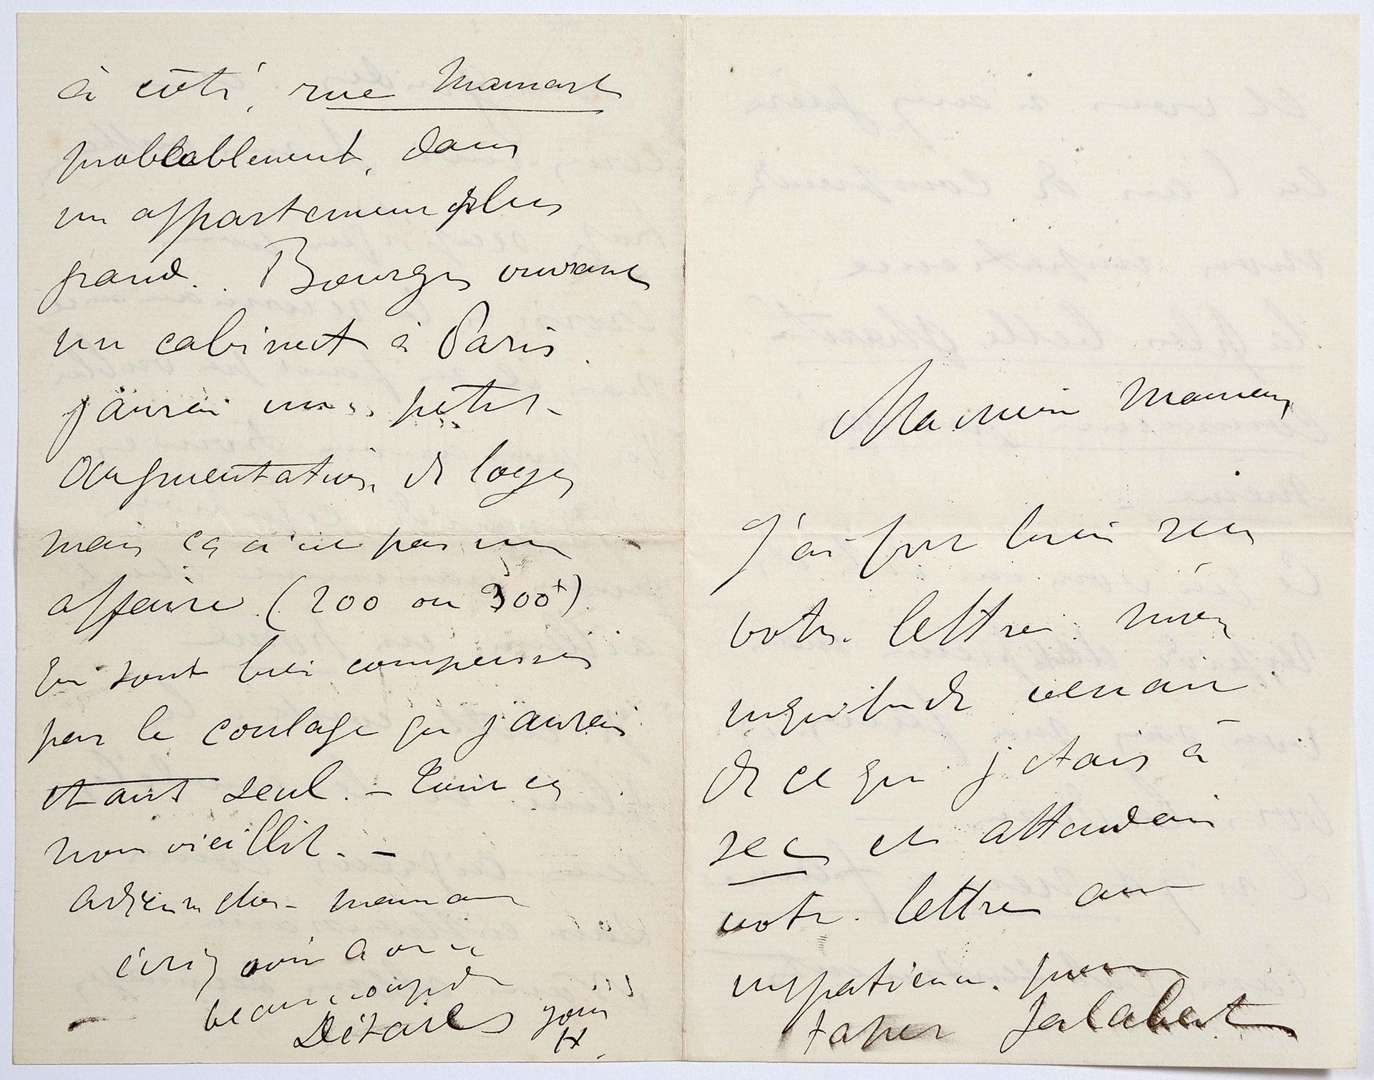 à côté, rue Mansart
probablement, dans
un appartement plus
grand. Bourges ouvrant
un cabinet à Paris
j'aurai une petite
augmentation de loyer
mais ça n'est pas une
affaire (200 ou 300f)
qui sont bien compensés
par le coulage que j'aurais
étant seul. – Tout ça
nous vieillit. –
adieu chère maman
écrivez moi avec
beaucoup de
Détails yours
H.
Ma chère Maman
J'ai fort bien reçu
votre lettre. Mon
inquiétude venait
de ce que j'étais à
sec et attendais
votre lettre avec
impatience pour
taper Jalabert